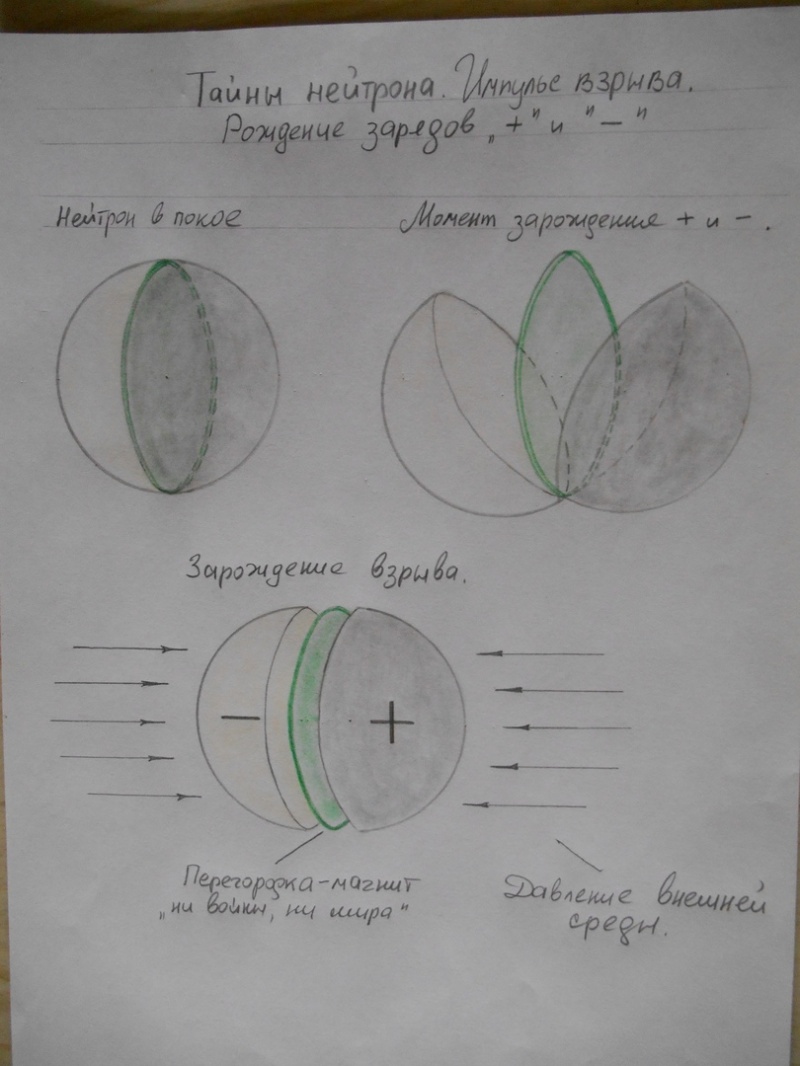 Тайны нейтрона. Импульс взрыва.
Рождение зарядов „+" и "—"
Нейтрон в покое
Момент зарождения + и - .
Зарождение взрыва.
— +
Перегородка-магнит
„ни войны, ни мира"
Давление внешней
среды.